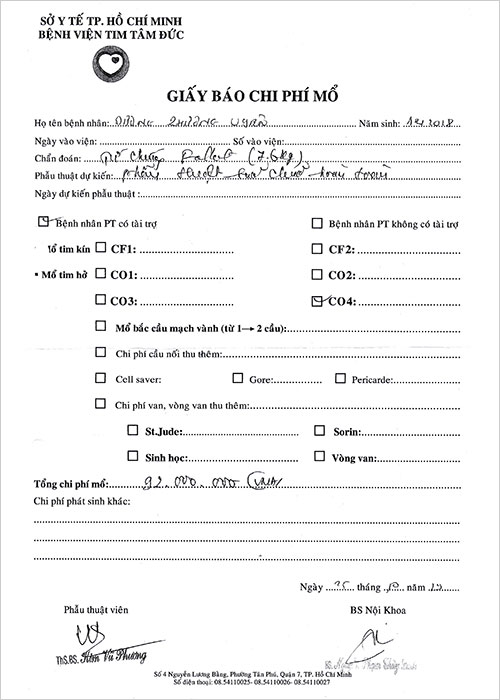 SỞ Y TẾ TP. HỒ CHÍ MINH
BỆNH VIỆN TIM TÂM ĐỨC
GIẤY BÁO CHI PHÍ MỔ
Họ tên bệnh nhân: Năm sinh:
Ngày vào viện: Số vào viện:
Chẩn đoán: Tứ chứng Fallot (7.6kg)
Phẫu thuật dự kiến: phẫu thuật sửa chữa hoàn toàn
Ngày dự kiến phẫu thuật:
Bệnh nhân PT có tài trợ Bệnh nhân PT không có tài trợ
ổ tim kín CF1: CF2:
• Mổ tim hở CO1: CO2:
CO3: CO4:
Mổ bắc cầu mạch vành (từ 1→ 2 cầu):
Chi phí cầu nối thu thêm:
Cell saver: Gore: Pericarde:
Chi phí van, vòng van thu thêm:
St.Jude: Sorin:
Sinh học: Vòng van:
Tổng chi phí mổ: 92.000.000
Chi phí phát sinh khác:
Ngày tháng năm
Phẫu thuật viên BS Nội Khoa
ThS.BS. Kim Vũ Phương
Số 4 Nguyễn Lương Bằng, Phường Tân Phú, Quận 7, TP. Hồ Chí Minh
Số điện thoại: 08.54110025- 08.54110026- 08.54110027